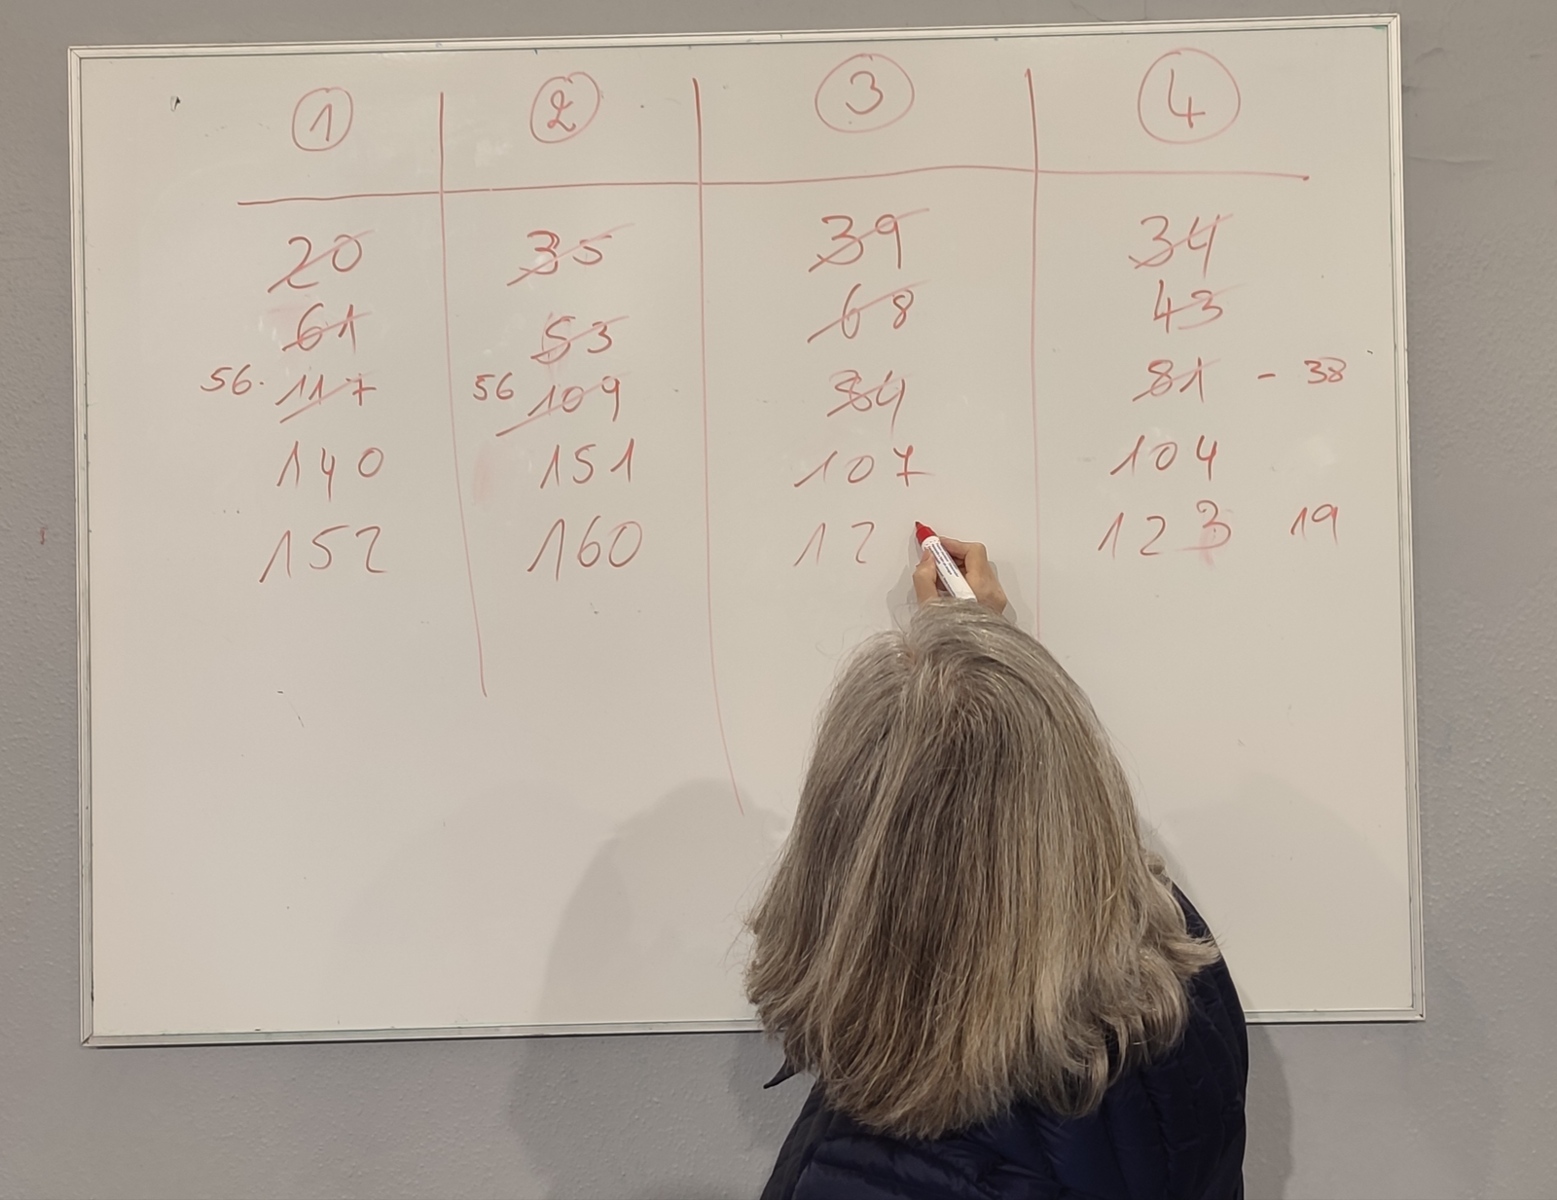 1 2 3 4
20 35 39 34
61 53 68 43
56. 117 56 109 84 81 - 38
140 151 107 104
152 160 12 123 19